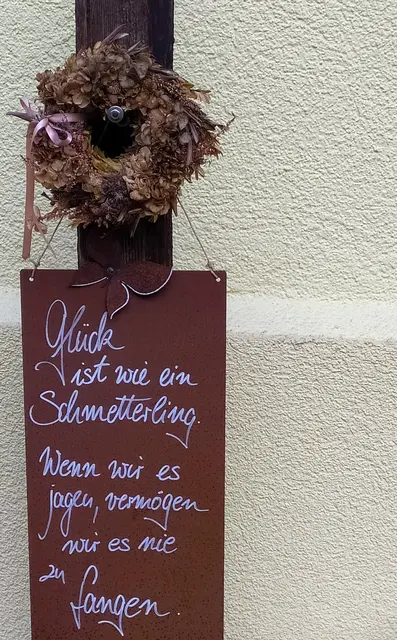 Glück
ist wie ein
Schmetterling.
Wenn wir es
jagen, vermögen
wir es nie
zu
fangen.